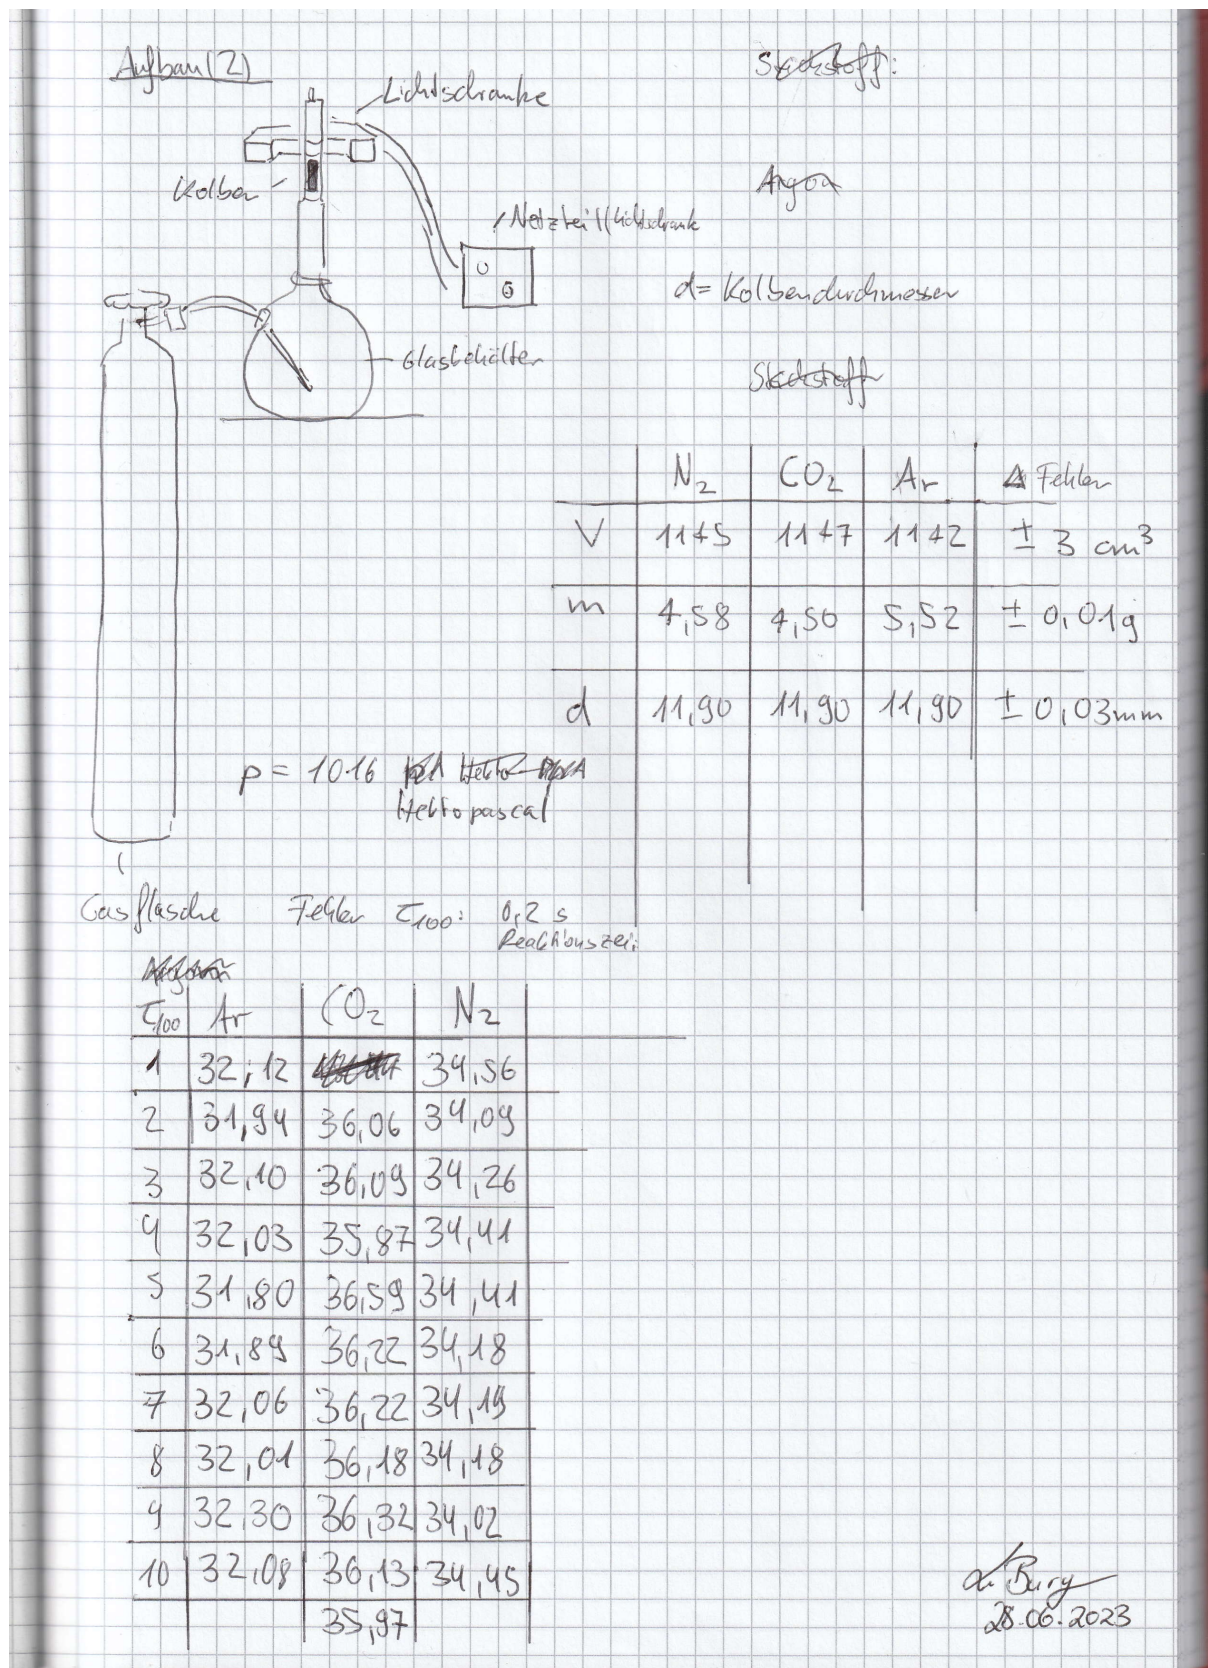 Aufbau (2)
Stickstoff:
Lichtschranke
Kolben
Argon
Netzteil/Lichtschrank
d = Kolbendurchmesser
Glasbehälter
Stickstoff
N2 CO2 Ar Δ Fehler
V 1175 1177 1172 ± 3 cm³
m 4,58 4,56 5,52 ± 0,01g
d 11,90 11,90 11,90 ± 0,03mm
p = 1016
Hektopascal
Gasflasche Fehler τ100: 0,2 s
Reaktionszeit
Argon
τ100 Ar CO2 N2
1 32,12 34,56
2 31,94 36,06 34,09
3 32,10 36,09 34,26
4 32,03 35,87 34,41
5 31,80 36,59 34,41
6 31,89 36,22 34,18
7 32,06 36,22 34,19
8 32,01 36,18 34,18
9 32,30 36,32 34,02
10 32,08 36,13 34,45
35,97
28.06.2023